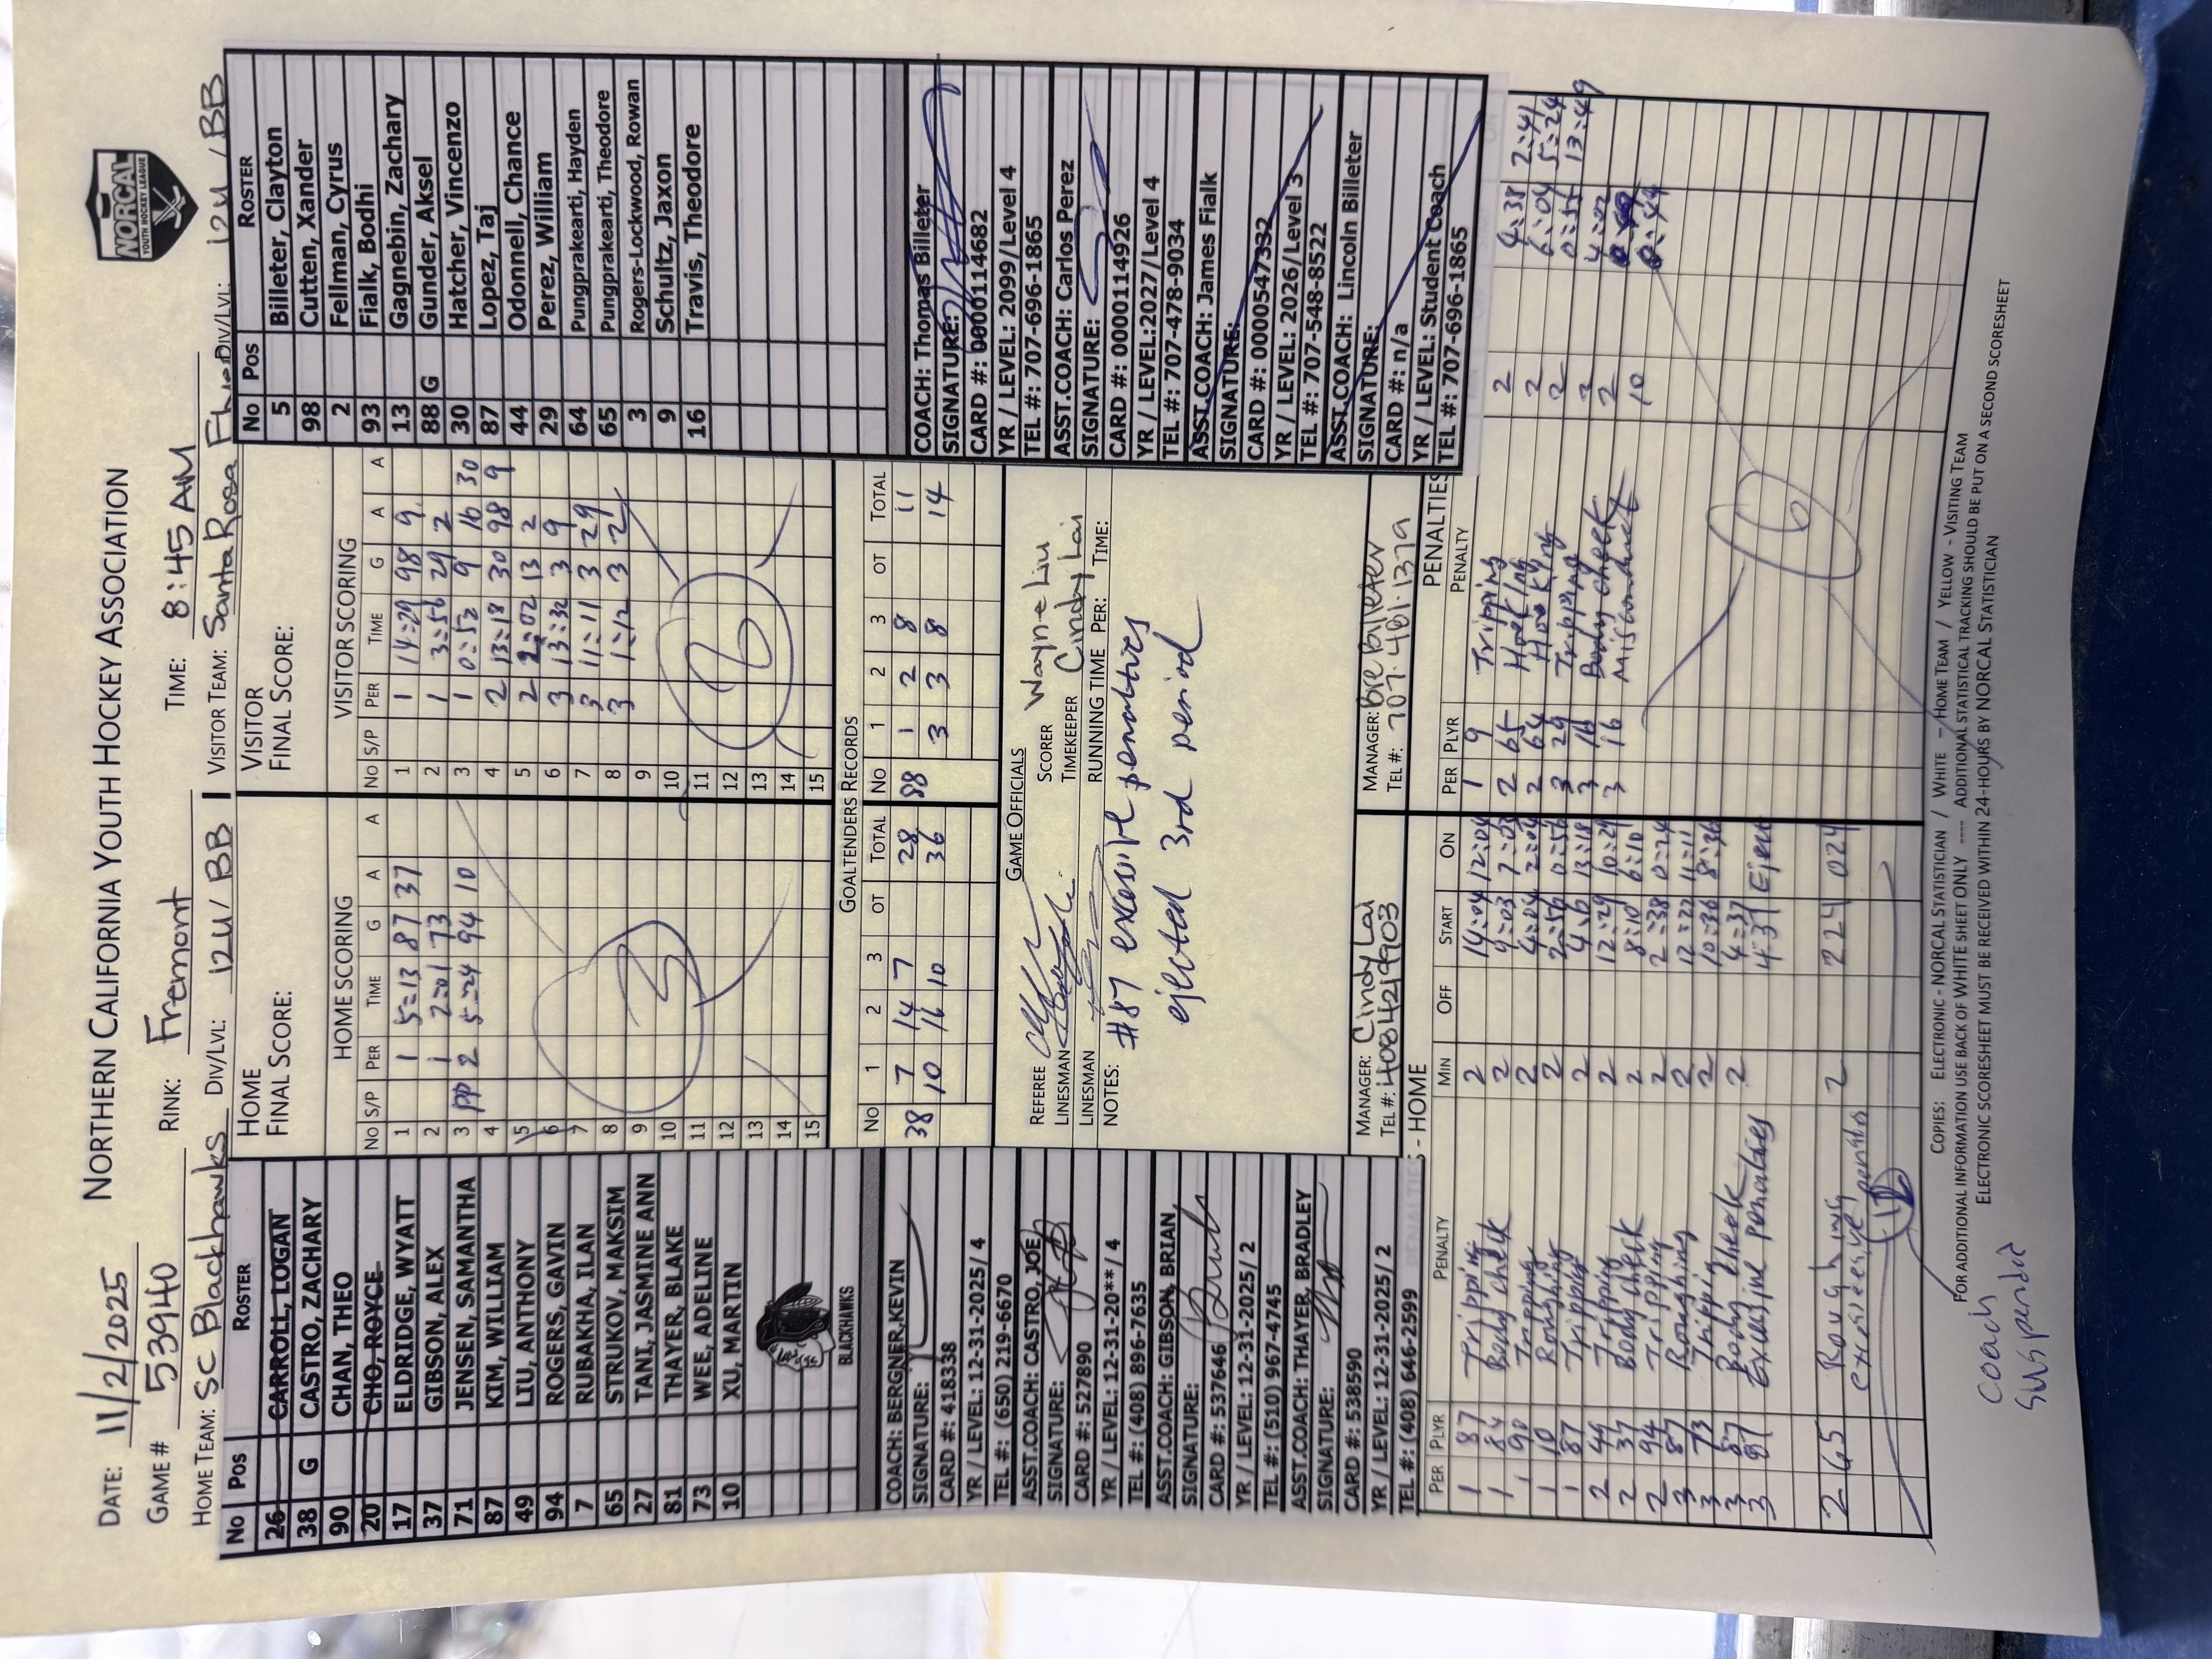 NORTHERN CALIFORNIA YOUTH HOCKEY ASSOCIATION
NORCAL
YOUTH HOCKEY LEAGUE
DATE: 11/2/2025
GAME # 53940 RINK: Fremont TIME: 8:45 AM
HOME TEAM: SC Blackhawks DIV/LVL: 12U/ BB VISITOR TEAM: Santa Rosa DIV/LVL: 12U / BB
No Pos ROSTER
26 CARROLL, LOGAN
38 G CASTRO, ZACHARY
90 CHAN, THEO
20 CHO, ROYCE
17 ELDRIDGE, WYATT
37 GIBSON, ALEX
71 JENSEN, SAMANTHA
87 KIM, WILLIAM
49 LIU, ANTHONY
94 ROGERS, GAVIN
7 RUBAKHA, ILAN
65 STRUKOV, MAKSIM
27 TANI, JASMINE ANN
81 THAYER, BLAKE
73 WEE, ADELINE
10 XU, MARTIN
BLACKHAWKS
COACH: BERGNER,KEVIN
SIGNATURE:
CARD #: 418338
YR / LEVEL: 12-31-2025/ 4
TEL #: (650) 219-6670
ASST.COACH: CASTRO, JOE
SIGNATURE:
CARD #: 527890
YR / LEVEL: 12-31-20**/ 4
TEL #: (408) 896-7635
ASST.COACH: GIBSON, BRIAN,
SIGNATURE:
CARD #: 537646
YR / LEVEL: 12-31-2025/ 2
TEL #: (510) 967-4745
ASST.COACH: THAYER, BRADLEY
SIGNATURE:
CARD #: 538590
YR / LEVEL: 12-31-2025/ 2
TEL #: (408) 646-2599
HOME
FINAL SCORE:
HOME SCORING
No S/P PER TIME G A A
1 1 5:13 87 37
2 1 2:01 73
3 PP 2 5:24 94 10
4
5
6
7
8
9
10
11
12
13
14
15
3
VISITOR
FINAL SCORE:
VISITOR SCORING
No S/P PER TIME G A A
1 1 14:29 98 9
2 1 3:56 29 2
3 1 0:52 9 16 30
4 2 13:18 30 98 9
5 2 2:02 13 2
6 3 13:32 3 9
7 3 11:11 3 29
8 3 1:12 3 2
9
10
11
12
13
14
15
8
No Pos ROSTER
5 Billeter, Clayton
98 Cutten, Xander
2 Fellman, Cyrus
93 Fialk, Bodhi
13 Gagnebin, Zachary
88 G Gunder, Aksel
30 Hatcher, Vincenzo
87 Lopez, Taj
44 Odonnell, Chance
29 Perez, William
64 Pungprakearti, Hayden
65 Pungprakearti, Theodore
3 Rogers-Lockwood, Rowan
9 Schultz, Jaxon
16 Travis, Theodore
COACH: Thomas Billeter
SIGNATURE:
CARD #: 000001114682
YR / LEVEL: 2099/Level 4
TEL #: 707-696-1865
ASST.COACH: Carlos Perez
SIGNATURE:
CARD #: 000001149926
YR / LEVEL:2027/Level 4
TEL #: 707-478-9034
ASST.COACH: James Fialk
SIGNATURE:
CARD #: 000000547332
YR / LEVEL: 2026/Level 3
TEL #: 707-548-8522
ASST.COACH: Lincoln Billeter
SIGNATURE:
CARD #: n/a
YR / LEVEL: Student Coach
TEL #: 707-696-1865
GOALTENDERS RECORDS
No 1 2 3 OT TOTAL No 1 2 3 OT TOTAL
38 7 14 7 28 88 1 2 8 11
10 16 10 36 3 3 8 14
GAME OFFICIALS
REFEREE SCORER Wayne Liu
LINESMAN TIMEKEEPER Cindy Lai
LINESMAN RUNNING TIME PER: TIME:
NOTES: #87 excessive penalties
ejected 3rd period
MANAGER: Cindy Lai MANAGER: Bre Billeter
TEL #: 4084219903 TEL #: 707-481-1379
- HOME PENALTIES
PER PLYR PENALTY MIN OFF START ON
1 87 Tripping 2 14:04 12:04
1 84 Body check 2 9:03 7:03
1 90 Tripping 2 4:04 2:04
1 10 Roughing 2 2:56 0:56
1 87 Tripping 2 13:18
2 49 Tripping 2 12:29 10:29
2 37 Body check 2 8:10 6:10
2 94 Tripping 2 2:38 0:24
3 87 Roughing 2 11:11
3 73 Tripping 2 10:36 8:36
3 87 Body check 2 4:37
3 87 Excessive penalties 4:37 Eject
2 65 Roughing 2 224 024
excessive
PER PLYR PENALTY
1 9 Tripping 2 4:38 2:41
2 65 Hooking 2 6:04 5:24
2 64 Hooking 2 0:55 13:49
3 29 Tripping 2 4:02
3 16 Body check 2
3 16 Misconduct 10 0:44
6
COPIES: ELECTRONIC - NORCAL STATISTICIAN / WHITE - HOME TEAM / YELLOW - VISITING TEAM
FOR ADDITIONAL INFORMATION USE BACK OF WHITE SHEET ONLY ---- ADDITIONAL STATISTICAL TRACKING SHOULD BE PUT ON A SECOND SCORESHEET
ELECTRONIC SCORESHEET MUST BE RECEIVED WITHIN 24-HOURS BY NORCAL STATISTICIAN
Coach
Suspended